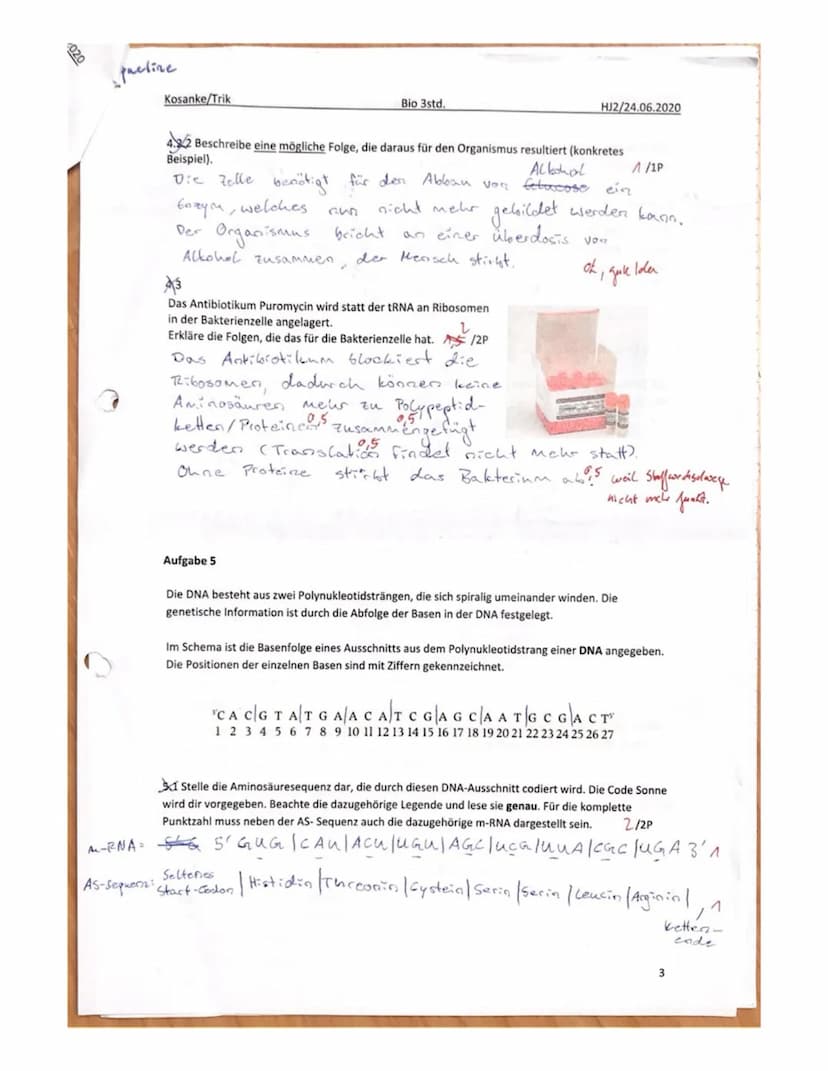 020
Kosanke/Trik Bio 3std. HJ2/24.06.2020
4.2.2 Beschreibe eine mögliche Folge, die daraus für den Organismus resultiert (konkretes
Beispiel). 1 /1P
Alkohol
Die Zelle benötigt für den Abbau von ein
Enzym, welches nun nicht mehr gebildet werden kann.
Der Organismus bricht an einer Überdosis von
Alkohol zusammen, der Mensch stirbt.
ok, gute Idee
4.3
Das Antibiotikum Puromycin wird statt der tRNA an Ribosomen
in der Bakterienzelle angelagert.
2
Erkläre die Folgen, die das für die Bakterienzelle hat. 1,5 /2P
Das Antibiotikum blockiert die
Ribosomen, dadurch können keine
Aminosäuren mehr zu Polypeptid-
ketten/Proteinen 0,5 zusammengefügt 0,5
werden (Translation 0,5 findet nicht mehr statt).
Ohne Proteine stirbt das Bakterium ab. 0,5 weil Stoffwechselwege
nicht mehr funkt.
Aufgabe 5
Die DNA besteht aus zwei Polynukleotidsträngen, die sich spiralig umeinander winden. Die
genetische Information ist durch die Abfolge der Basen in der DNA festgelegt.
Im Schema ist die Basenfolge eines Ausschnitts aus dem Polynukleotidstrang einer DNA angegeben.
Die Positionen der einzelnen Basen sind mit Ziffern gekennzeichnet.
3'C A C|G T A|T G A|A C A|T C G|A G C|A A T|G C G|A C T5'
1 2 3 4 5 6 7 8 9 10 11 12 13 14 15 16 17 18 19 20 21 22 23 24 25 26 27
5.1 Stelle die Aminosäuresequenz dar, die durch diesen DNA-Ausschnitt codiert wird. Die Code Sonne
wird dir vorgegeben. Beachte die dazugehörige Legende und lese sie genau. Für die komplette
Punktzahl muss neben der AS- Sequenz auch die dazugehörige m-RNA dargestellt sein. 2/2P
m-RNA= 5' GUG|CAU|ACU|UGU|AGC|UCG|UUA|CGC|UGA 3' 1
AS-Sequenz: Seltenes
Start-Codon | Histidin | Threonin | Cystein | Serin | Serin | Leucin | Arginin | 1
Ketten-
ende
3